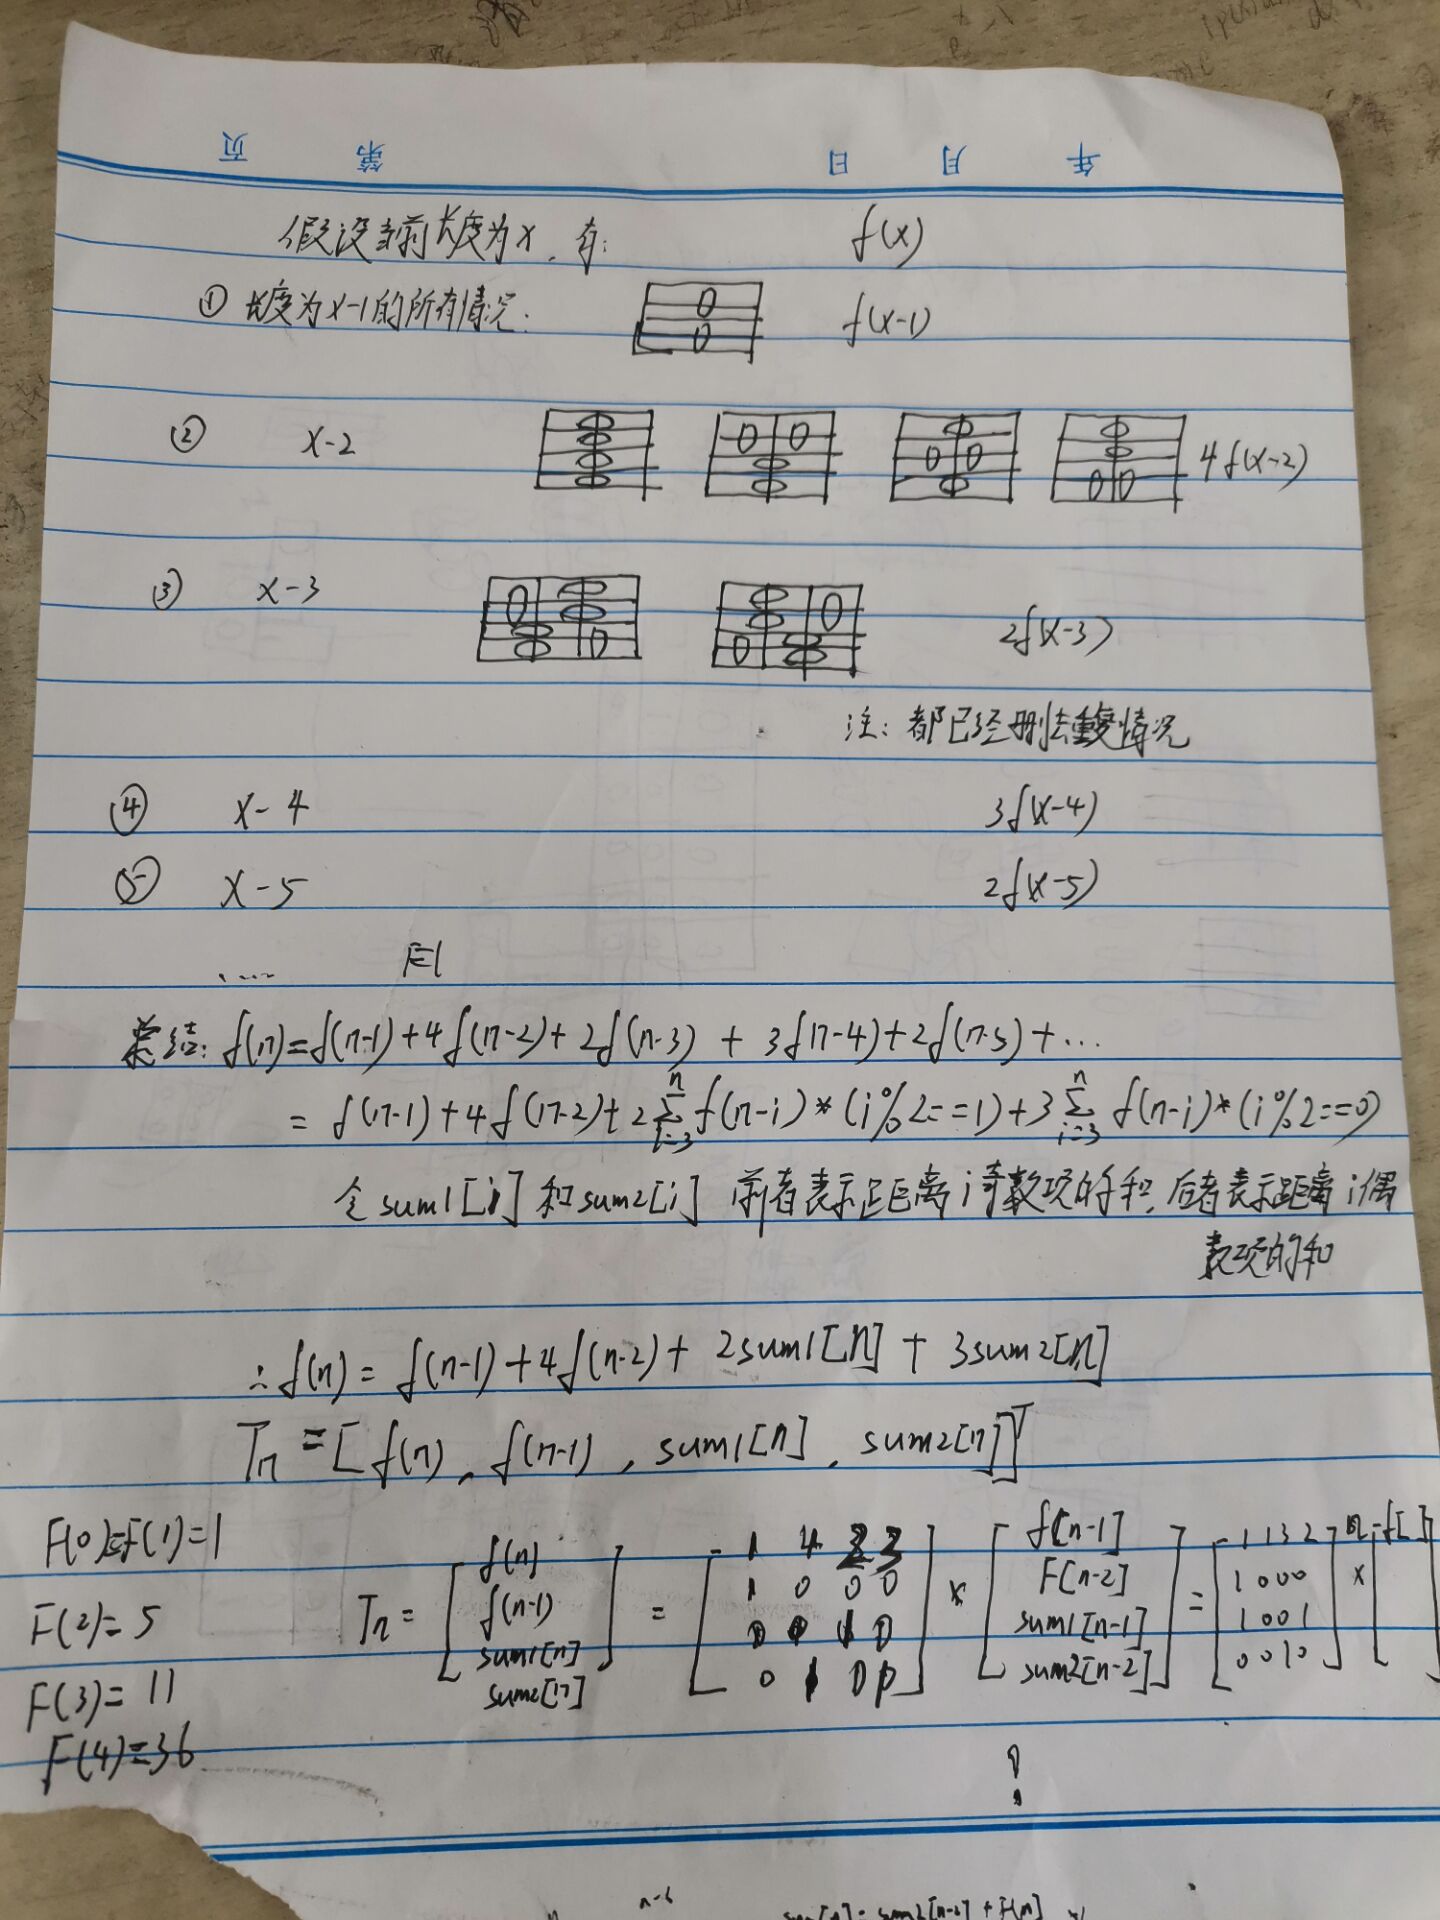 页 第 日 月 年
假设当前长度为x，有： f(x)
① 长度为x-1的所有情况. f(x-1)
② x-2 4f(x-2)
③ x-3 2f(x-3)
注：都已经删去重复情况
④ x-4 3f(x-4)
⑤ x-5 2f(x-5)
....
总结: f(n)=f(n-1)+4f(n-2)+2f(n-3)+3f(n-4)+2f(n-5)+...
= f(n-1)+4f(n-2)+2∑_{i=3}^{n} f(n-i)*(i%2==1)+3∑_{i=3}^{n} f(n-i)*(i%2==0)
令sum1[i]和sum2[i] 前者表示距离i奇数项的和,后者表示距离i偶
数项的和
∴f(n)=f(n-1)+4f(n-2)+2sum1[n]+3sum2[n]
Tn=[f(n), f(n-1), sum1[n], sum2[n]]T
F(0)=F(1)=1
F(2)=5
F(3)=11
F(4)=36
Tn = [f(n) f(n-1) sum1[n] sum2[n]] = [1 4 2 3
1 0 0 0
0 1 0] × [f[n-1] F[n-2] sum1[n-1] sum2[n-2]] = [1 1 3 2
1 0 0 0
1 0 0 1
0 0 1 0] × [f[]
!
n-6
sum2[n-2]+F[n]